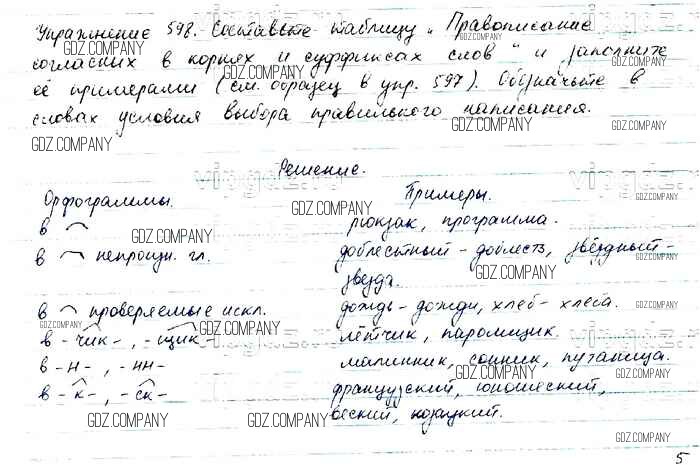 Упражнение 598. Составьте таблицу „Правописание
согласных в корнях и суффиксах слов" и заполните
её примерами (см. образец в упр. 597). Обозначьте в
словах условия выбора правильного написания.
Решение.
Орфограммы. Примеры.
в рюкзак, программа.
в непроизн. гл. доблестный - доблесть, звёздный -
звезда.
в проверяемые искл. дождь - дожди, хлеб - хлеба.
в - чик -, - щик - лётчик, паромщик.
в - н -, - нн - малинник, сонник, путаница.
в - к -, - ск - французский, юношеский,
веский, козацкий.
5
GDZ.COMPANY